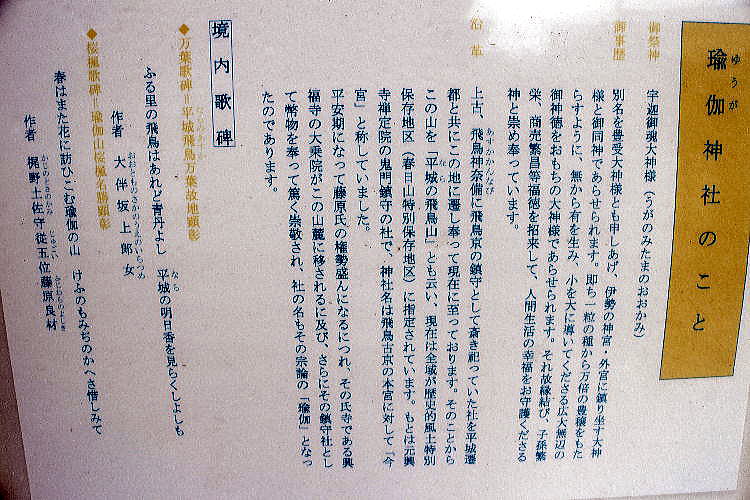 瑜伽神社のこと
ゆうが
御祭神
宇迦御魂大神様(うがのみたまのおおかみ)
御事歴
別名を豊受大神様とも申しあげ、伊勢の神宮・外宮に鎮り坐す大神
様と御同神であらせられます。即ち一粒の種から万倍の豊穣をもた
らすように、無から有を生み、小を大に導いてくださる広大無辺の
御神徳をおもちの大神様であらせられます。それ故縁結び、子孫繁
栄、商売繁昌等福徳を招来して、人間生活の幸福をお守護くださる
神と崇め奉っています。
沿革
上古、飛鳥神奈備に飛鳥京の鎮守として斎き祀っていた社を平城遷
あすかかんなび
都と共にこの地に遷し奉って現在に至っております。そのことから
この山を「平城の飛鳥山」とも云い、現在は全域が歴史的風土特別
なら
保存地区(春日山特別保存地区)に指定されています。もとは元興
寺禅定院の鬼門鎮守の社で、神社名は飛鳥古京の本宮に対して「今
宮」と称していました。
平安期になって藤原氏の権勢盛んになるにつれ、その氏寺である興
福寺の大乗院がこの山麓に移されるに及び、さらにその鎮守社とし
て幣物を奉って篤く崇敬され、社の名もその宗論の「瑜伽」となっ
たのであります。
境内歌碑
◆万葉歌碑=平城飛鳥万葉故地顕彰
ふる里の飛鳥はあれど青丹よし 平城の明日香を見らくしよしも
なら
作者 大伴坂上郎女
おおとものさかのうえのいらつめ
◆桜楓歌碑=瑜伽山桜楓名勝顕彰
春はまた花に訪ひこむ瑜伽の山 けふのもみぢのかへさ惜しみて
作者 梶野土佐守従五位藤原良材
かじのとさのかみ じゅごい ふじわらのよしき